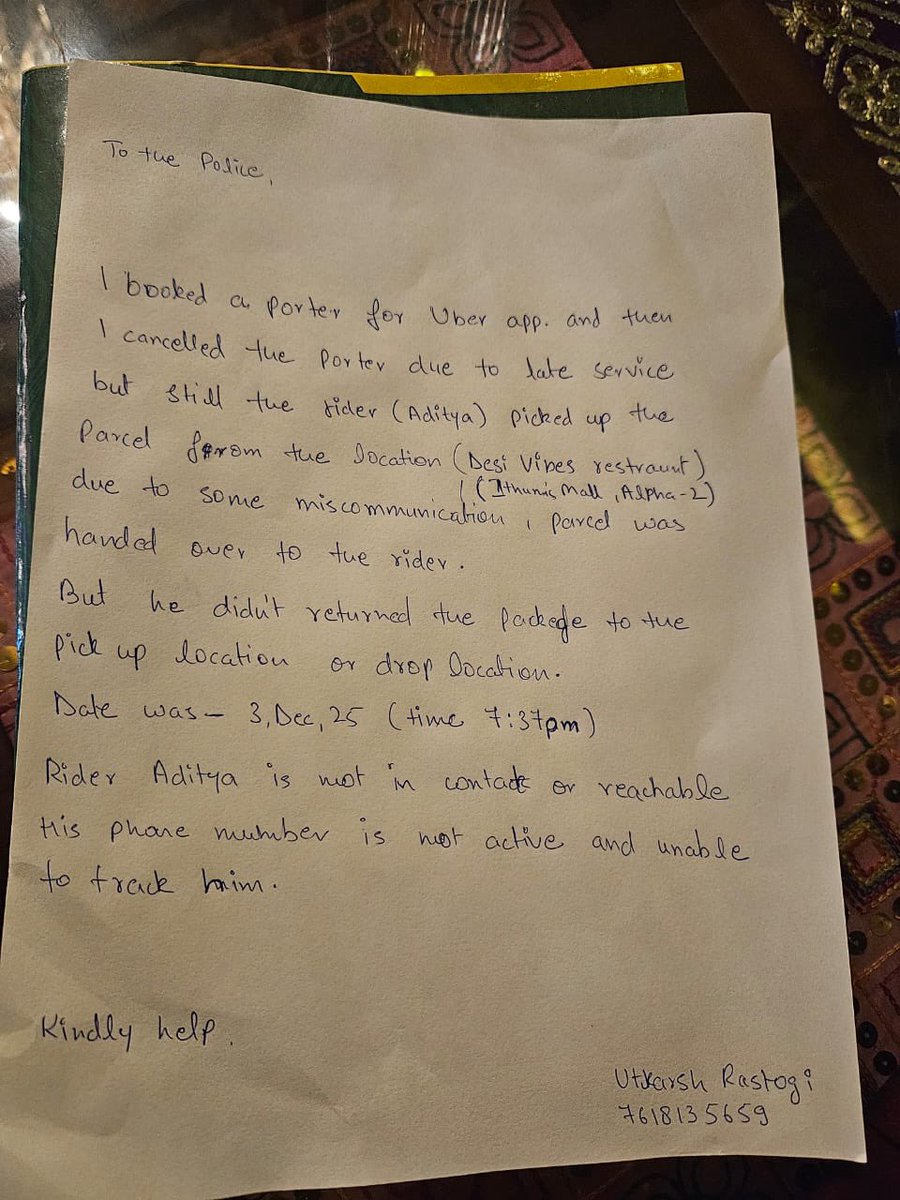 To the Police,
I booked a porter for Uber app. and then
I cancelled the porter due to late service
but still the rider (Aditya) picked up the
Parcel from the location (Desi Vibes restraunt)
(Ithum's Mall, Alpha-2)
due to some miscommunication, parcel was
handed over to the rider.
But he didn't returned the package to the
pick up location or drop location.
Date was - 3, Dec, 25 (time 7:37pm)
Rider Aditya is not in contact or reachable
His phone number is not active and unable
to track him.
Kindly help.
Utkarsh Rastogi
7618135659